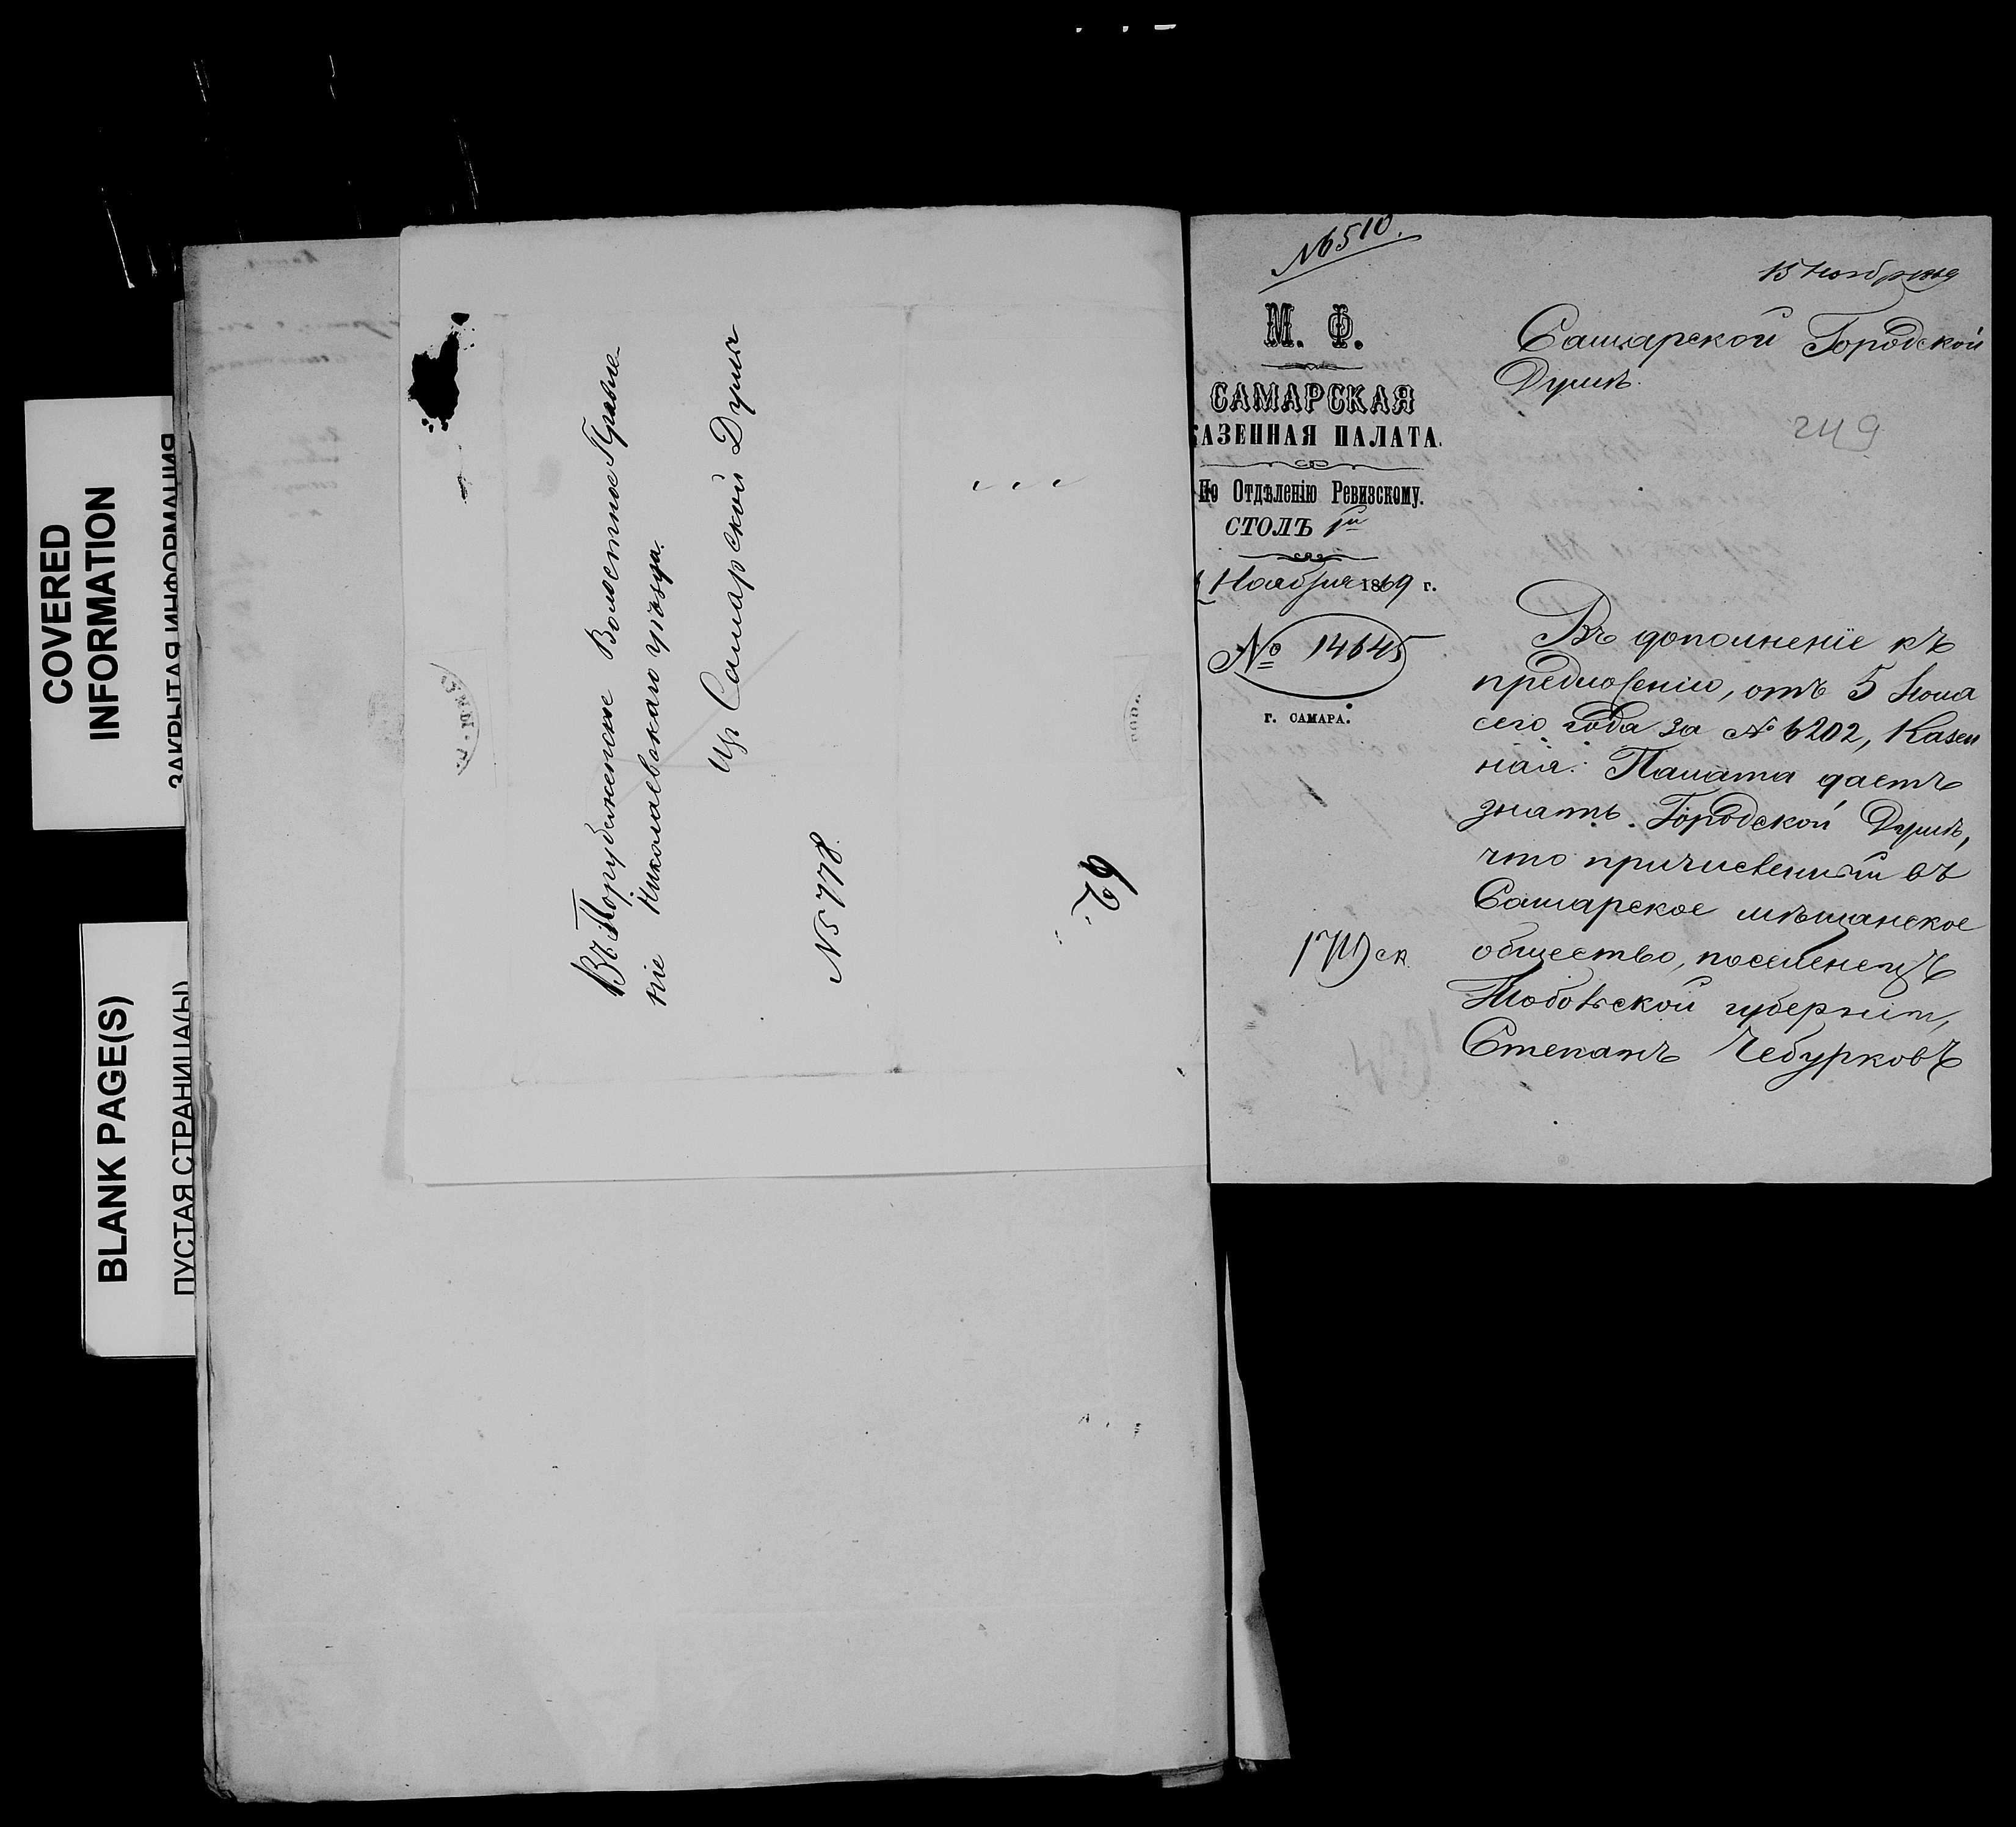 COVERED
INFORMATION
ЗАКРЫТАЯ ИНФОРМАЦИЯ
BLANK PAGE(S)
ПУСТАЯ СТРАНИЦА(Ы)
Въ Порубеженское Волостное Правле-
ніе Николаевскаго уѣзда.
Изъ Самарской Думы
№ 778.
№ 6510.
15 Ноября 1869
М. Ф.
САМАРСКАЯ
КАЗЕННАЯ ПАЛАТА.
По Отдѣленію Ревизскому.
СТОЛЪ 1й
Ноября 1869 г.
№ 14645
г. САМАРА.
Самарской Городской
Думѣ.
249
Въ дополненіе къ
предложенію, отъ 5 Іюня
сего года за № 6202, Казен
ная Палата даетъ
знать Городской Думѣ,
что причисленный въ
Самарское мѣщанское
общество, поселенецъ
Тобольской губерніи,
Степанъ Чебурковъ